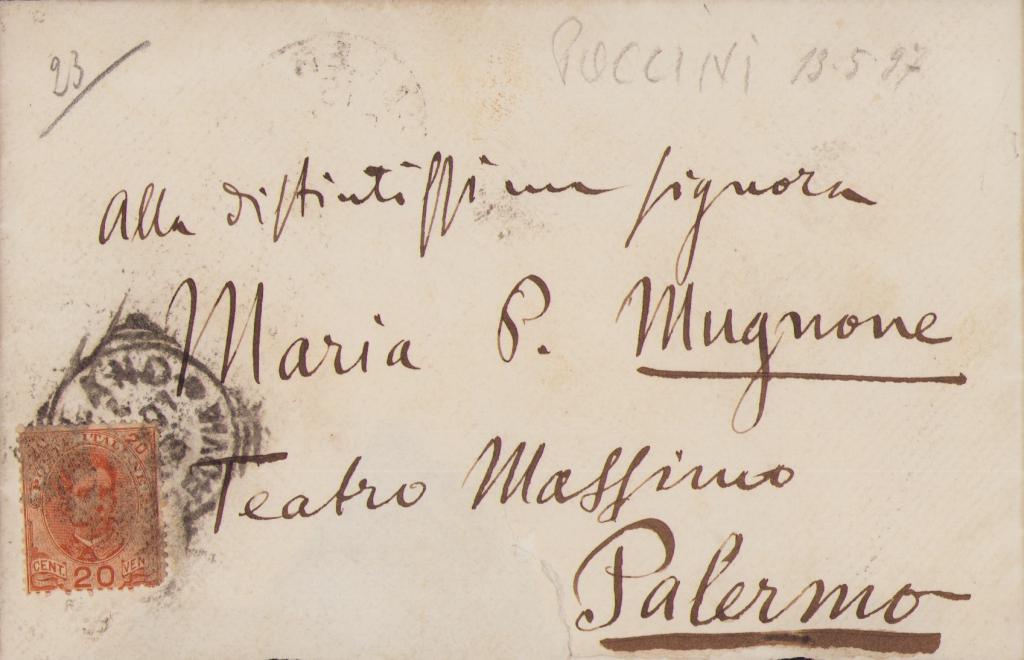 23
PUCCINI 13.5.97
Alla distintissima signora
Maria P. Mugnone
Teatro Massimo
Palermo
ITAL
20
CENT. 20 VEN